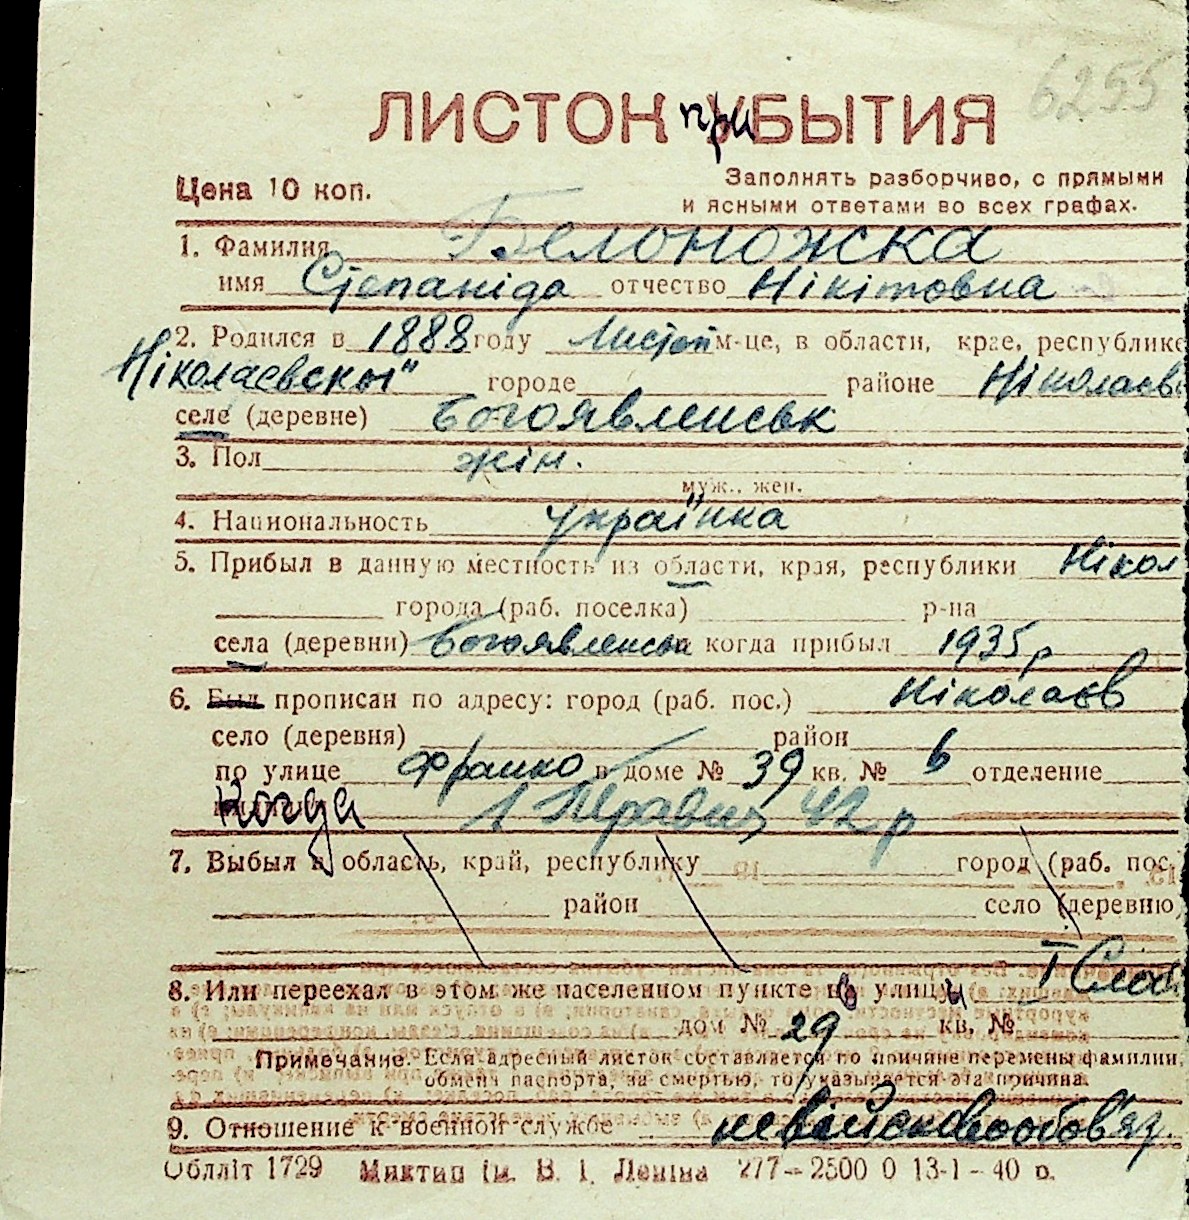 6255
ЛИСТОК прИБЫТИЯ
Цена 10 коп.
Заполнять разборчиво, с прямыми
и ясными ответами во всех графах.
1. Фамилия Белоножска
имя Степаніда отчество Нікітовна
2. Родился в 1888 году Листоп м-це, в области, крае, республике
Ніколаевский городе районе Ніколаевс
селе (деревне) Богоявленськ
3. Пол жін.
муж., жен.
4. Национальность українка
5. Прибыл в данную местность из области, края, республики Нікол
города (раб. поселка) р-на
села (деревни) Богоявленськ когда прибыл 1935 р
6. Был прописан по адресу: город (раб. пос.) Ніколаєв
село (деревня) район
по улице Франко в доме № 39 кв. № 6 отделение
Когда 1 Травня 42 р
7. Выбыл в область, край, республику город (раб. пос.
район село (деревню
8. Или переехал в этом же населенном пункте на улицу I Слоб
дом № 29 кв. №
Примечание. Если адресный листок составляется по причине перемены фамилии,
обмена паспорта, за смертью, то указывается эта причина.
9. Отношение к военной службе невійськовообов'яз.
Обліт 1729 Миктип ім. В. І. Леніна 277–2500 0 13-1–40 р.